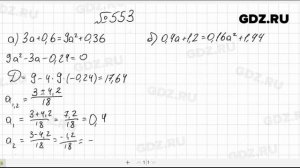 GDZ.RU
№553
а) 3a+0,6=9a²+0,36
9a²-3a-0,24=0
D=9-4·9·(-0,24)=17,64
a₁,₂=3±4,2/18
a₁=3+4,2/18=7,2/18=0,4
a₂=3-4,2/18=-1,2/18=-
б) 0,4a+1,2=0,16a²+1,44
GDZ.RU